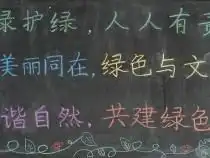 绿护绿,人人有责
美丽同在,绿色与文
谐自然,共建绿色